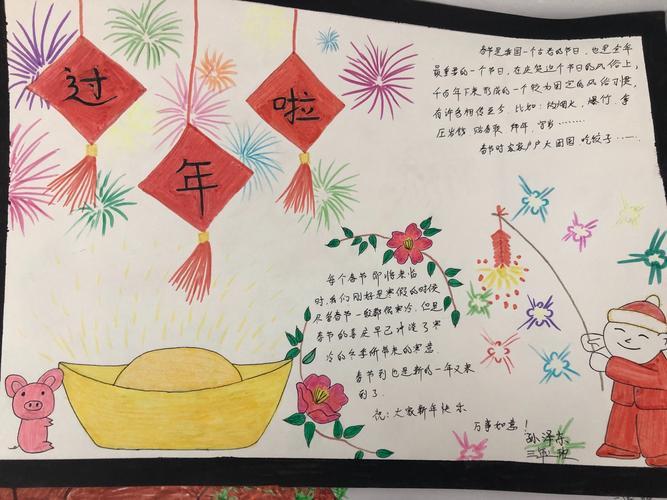 过
年
啦
春节是我国一个古老的节日，也是全年
最重要的一个节日，在庆贺这个节日的风俗上，
千百年下来形成的一个较为固定的风俗习惯，
有许多相传至今，比如：放烟火，爆竹，拿
压岁钱 贴春联 拜年，守岁………
春节时家家户户大团圆 吃饺子……
每个春节即将来临
时，我们刚好是寒假的时候
尽管春节一般都很寒冷，但是
春节的喜庆早已冲淡了寒
冷的冬季所带来的寒意.
春节到也是新的一年又来
到了.
祝：大家新年快乐
万事如意！
孙泽东
三年 班